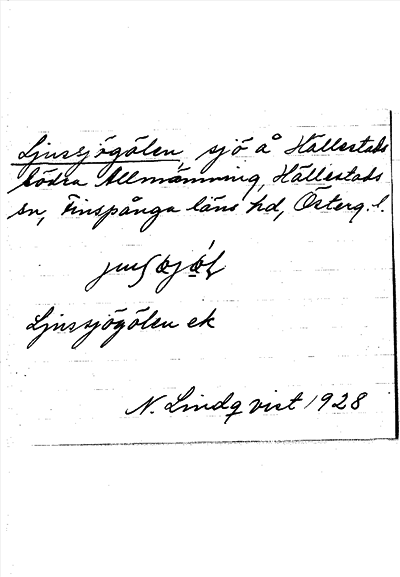 Ljussjögölen, sjö å Hällestads
södra Allmänning, Hällestads
sn, Finspånga läns hd, Österg. l.
Ljussjögölen ek
N. Lindqvist 1928